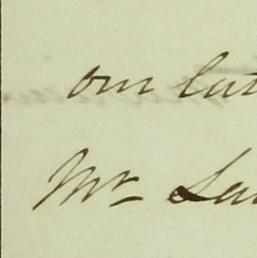 our lat
Mr Sa